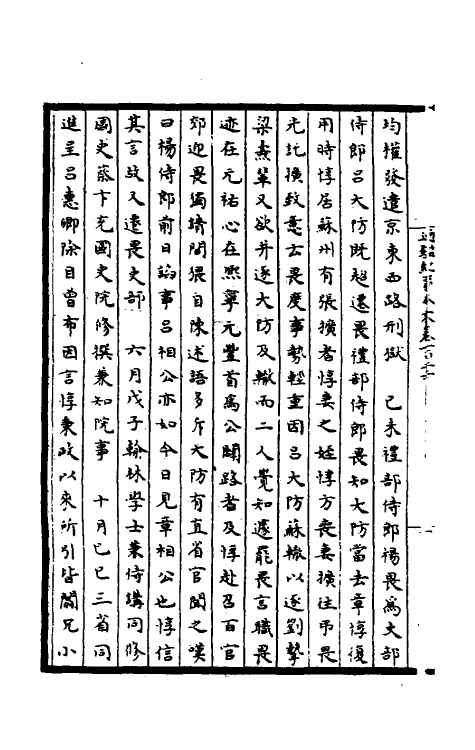 均權發遣京東西路刑獄　己未禮部侍郎楊畏為大部
侍郎呂大防既超遷畏禮部侍郎畏知大防當去章惇復
用時惇居蘇州有張擴者惇妻之姪惇方喪妻擴往弔畏
元託擴致意云畏度事勢輕重因呂大防蘇轍以逐劉摯
梁燾輩又欲并逐大防及轍而二人覺知遽罷畏言職畏
迹在元祐心在熙寧元豐首為公闢路者及惇赴召百官
郊迎畏獨請間猥自陳述語多斥大防有直省官聞之嘆
曰楊侍郎前日諂事呂相公亦如今日見章相公也惇信
其言故又遷畏吏部　六月戊子翰林學士兼侍講同修
國史蔡卞充國史院修撰兼知院事　十月己巳三省同
進呈呂惠卿除目曾布因言惇秉政以來所引皆闒冗小